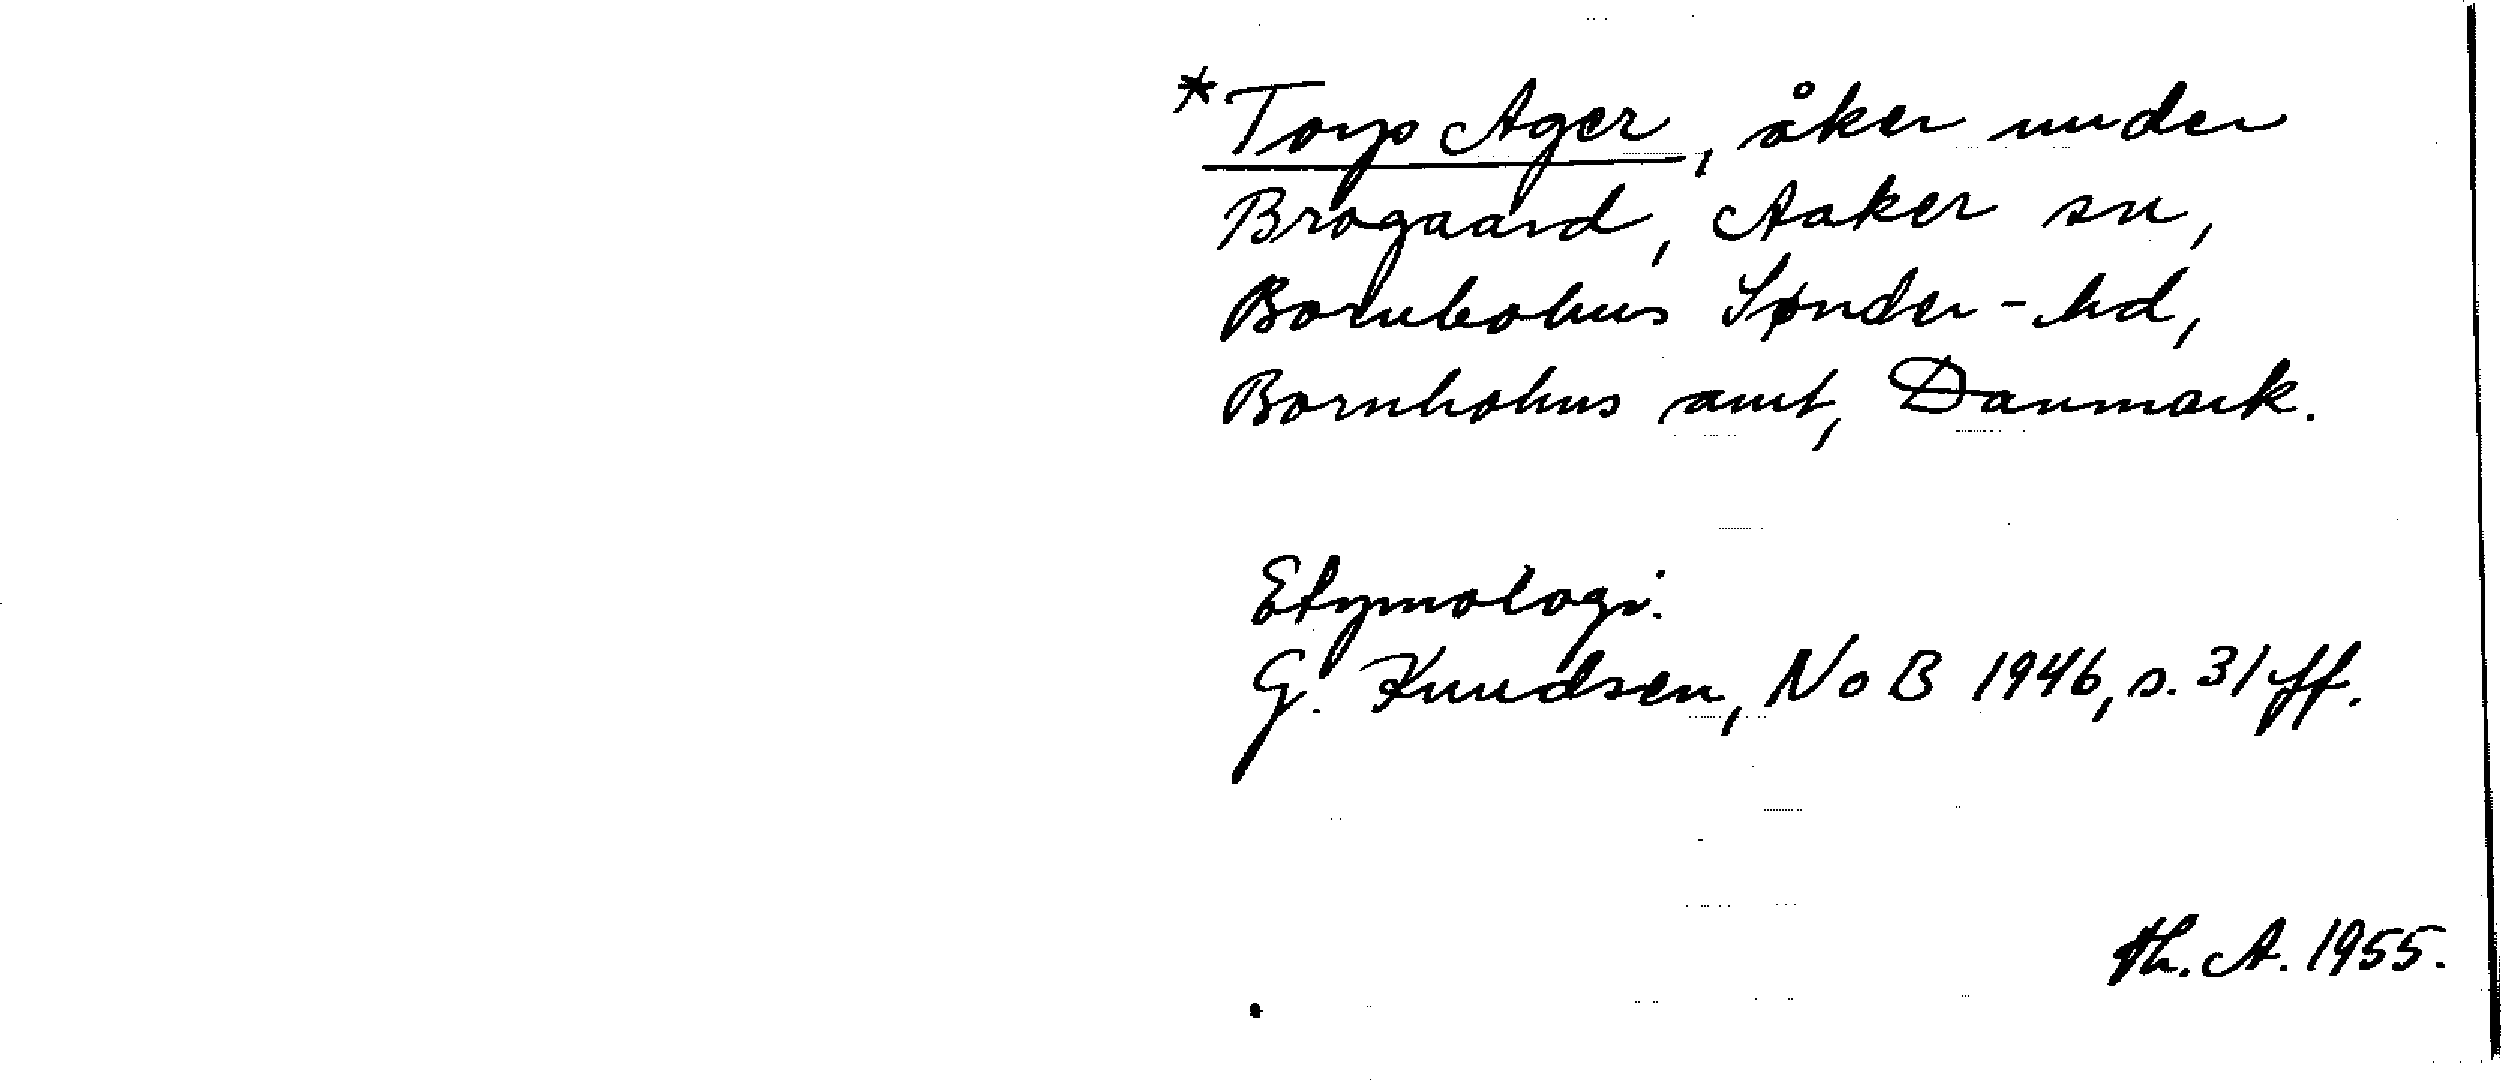 *Torp Ager, åker under
Brogaard, Aaker sn,
Bornholms Sønder-hd,
Bornholms amt, Danmark.
Etymologi.
G. Knudsen, NoB 1946, s. 31 ff.
Th. A. 1955.